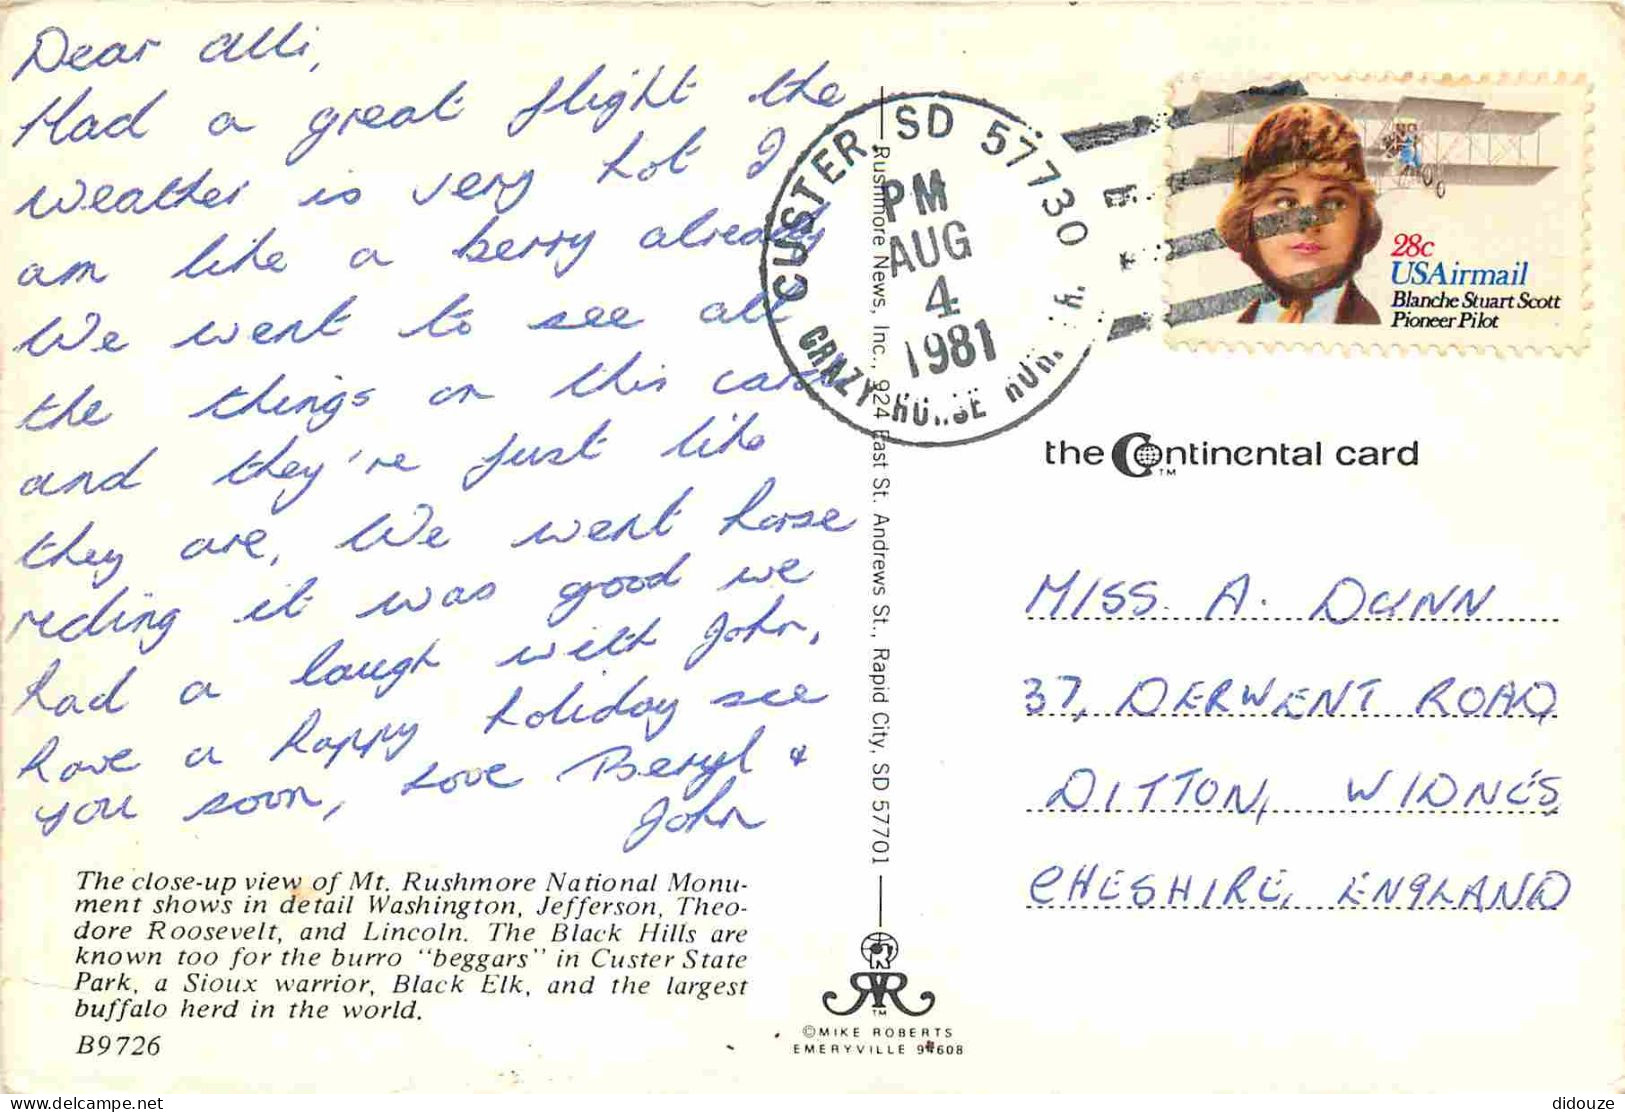 Dear Alli,
Had a great flight the
weather is very hot I
am like a berry already
We went to see all
the things on this card
and they're just like
they are, We went horse
reding it was good we
had a laugh with John,
have a happy holiday see
you soon, Love Beryl &
John
The close-up view of Mt. Rushmore National Monu-
ment shows in detail Washington, Jefferson, Theo-
dore Roosevelt, and Lincoln. The Black Hills are
known too for the burro "beggars" in Custer State
Park, a Sioux warrior, Black Elk, and the largest
buffalo herd in the world.
B9726
Rushmore News, Inc., 924 East St. Andrews St., Rapid City, SD 57701
CUSTER SD 57730
PM
AUG
4
1981
CRAZY HORSE
28c
USAirmail
Blanche Stuart Scott
Pioneer Pilot
the Continental card
TM
MISS. A. DUNN
37, DERWENT ROAD
DITTON, WIDNES
CHESHIRE, ENGLAND
TM
©MIKE ROBERTS
EMERYVILLE 94608
delcampe.net
didouze